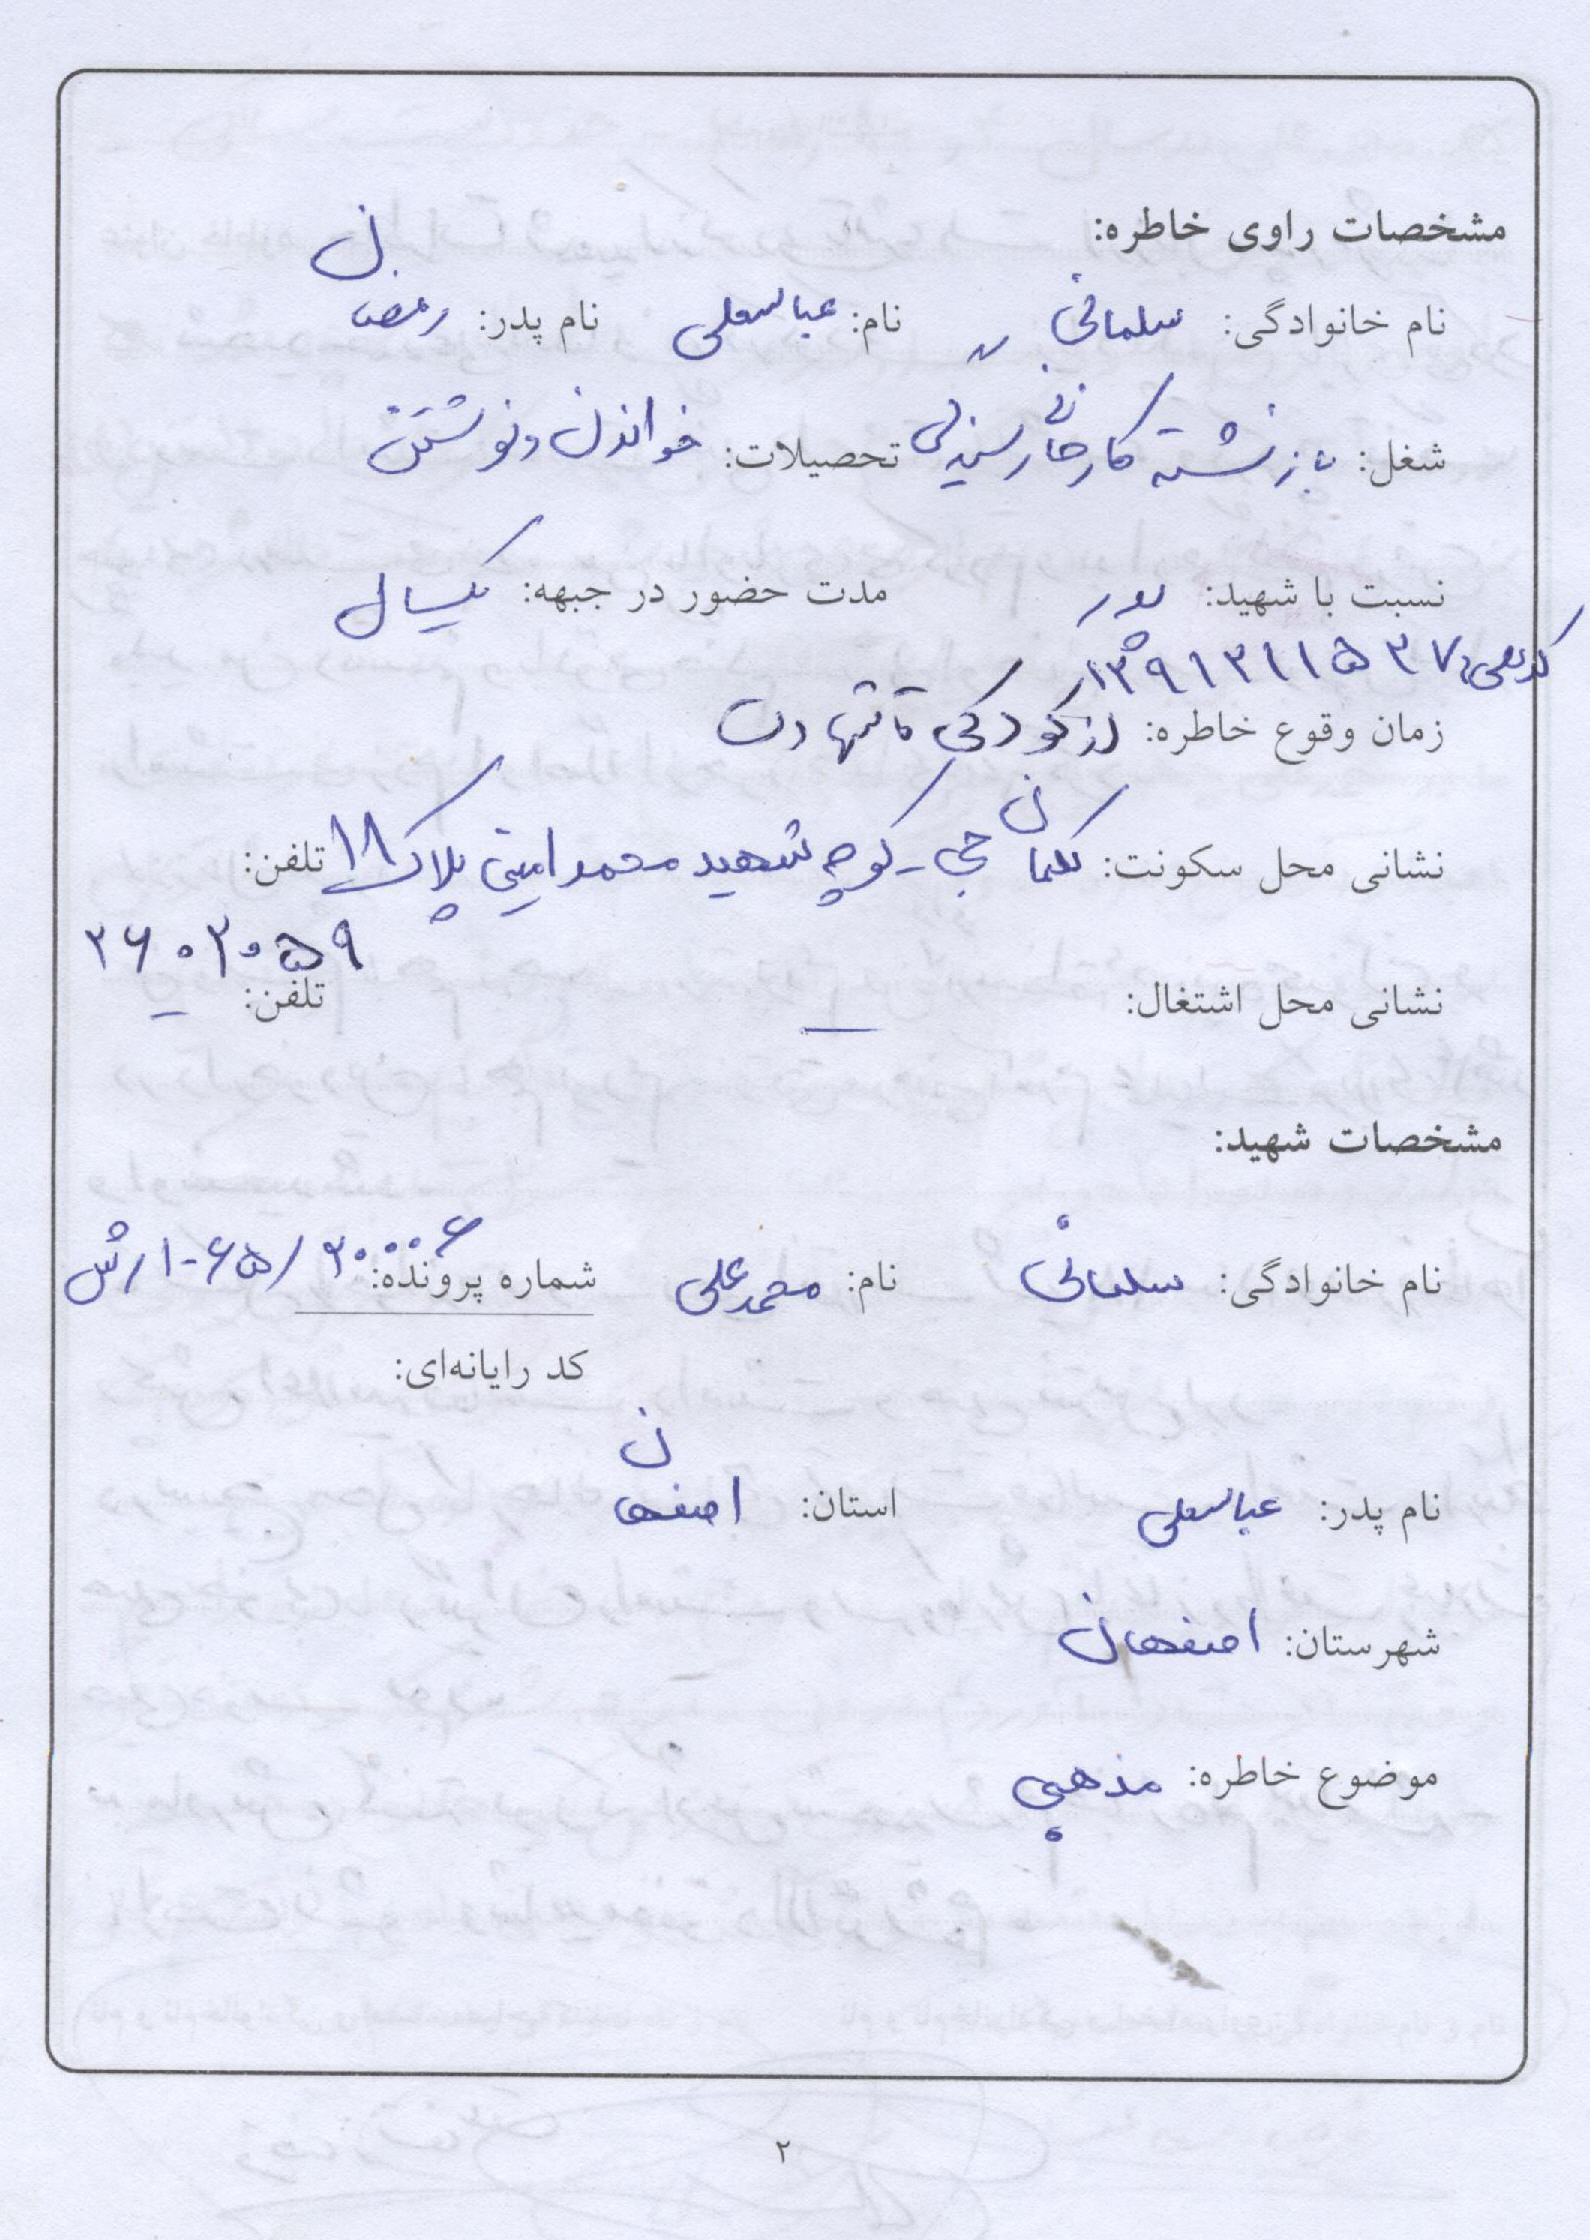 مشخصات راوی خاطره:
نام خانوادگی: سلمانی نام: عباسعلی نام پدر: رمضان
شغل: بازنشسته کارخانه ریسندگی تحصیلات: خواندن و نوشتن
نسبت با شهید: پدر مدت حضور در جبهه: یکسال
زمان وقوع خاطره: از کودکی تا شهادت
نشانی محل سکونت: حجی - کوچه شهید محمد امینی پلاک ۱۸ تلفن:
۲۶۰۲۰۵۹
نشانی محل اشتغال: — تلفن: —
مشخصات شهید:
نام خانوادگی: سلمانی نام: محمدعلی شماره پرونده:
کد رایانه‌ای:
نام پدر: عباسعلی استان: اصفهان
شهرستان: اصفهان
موضوع خاطره: مذهبی
۲